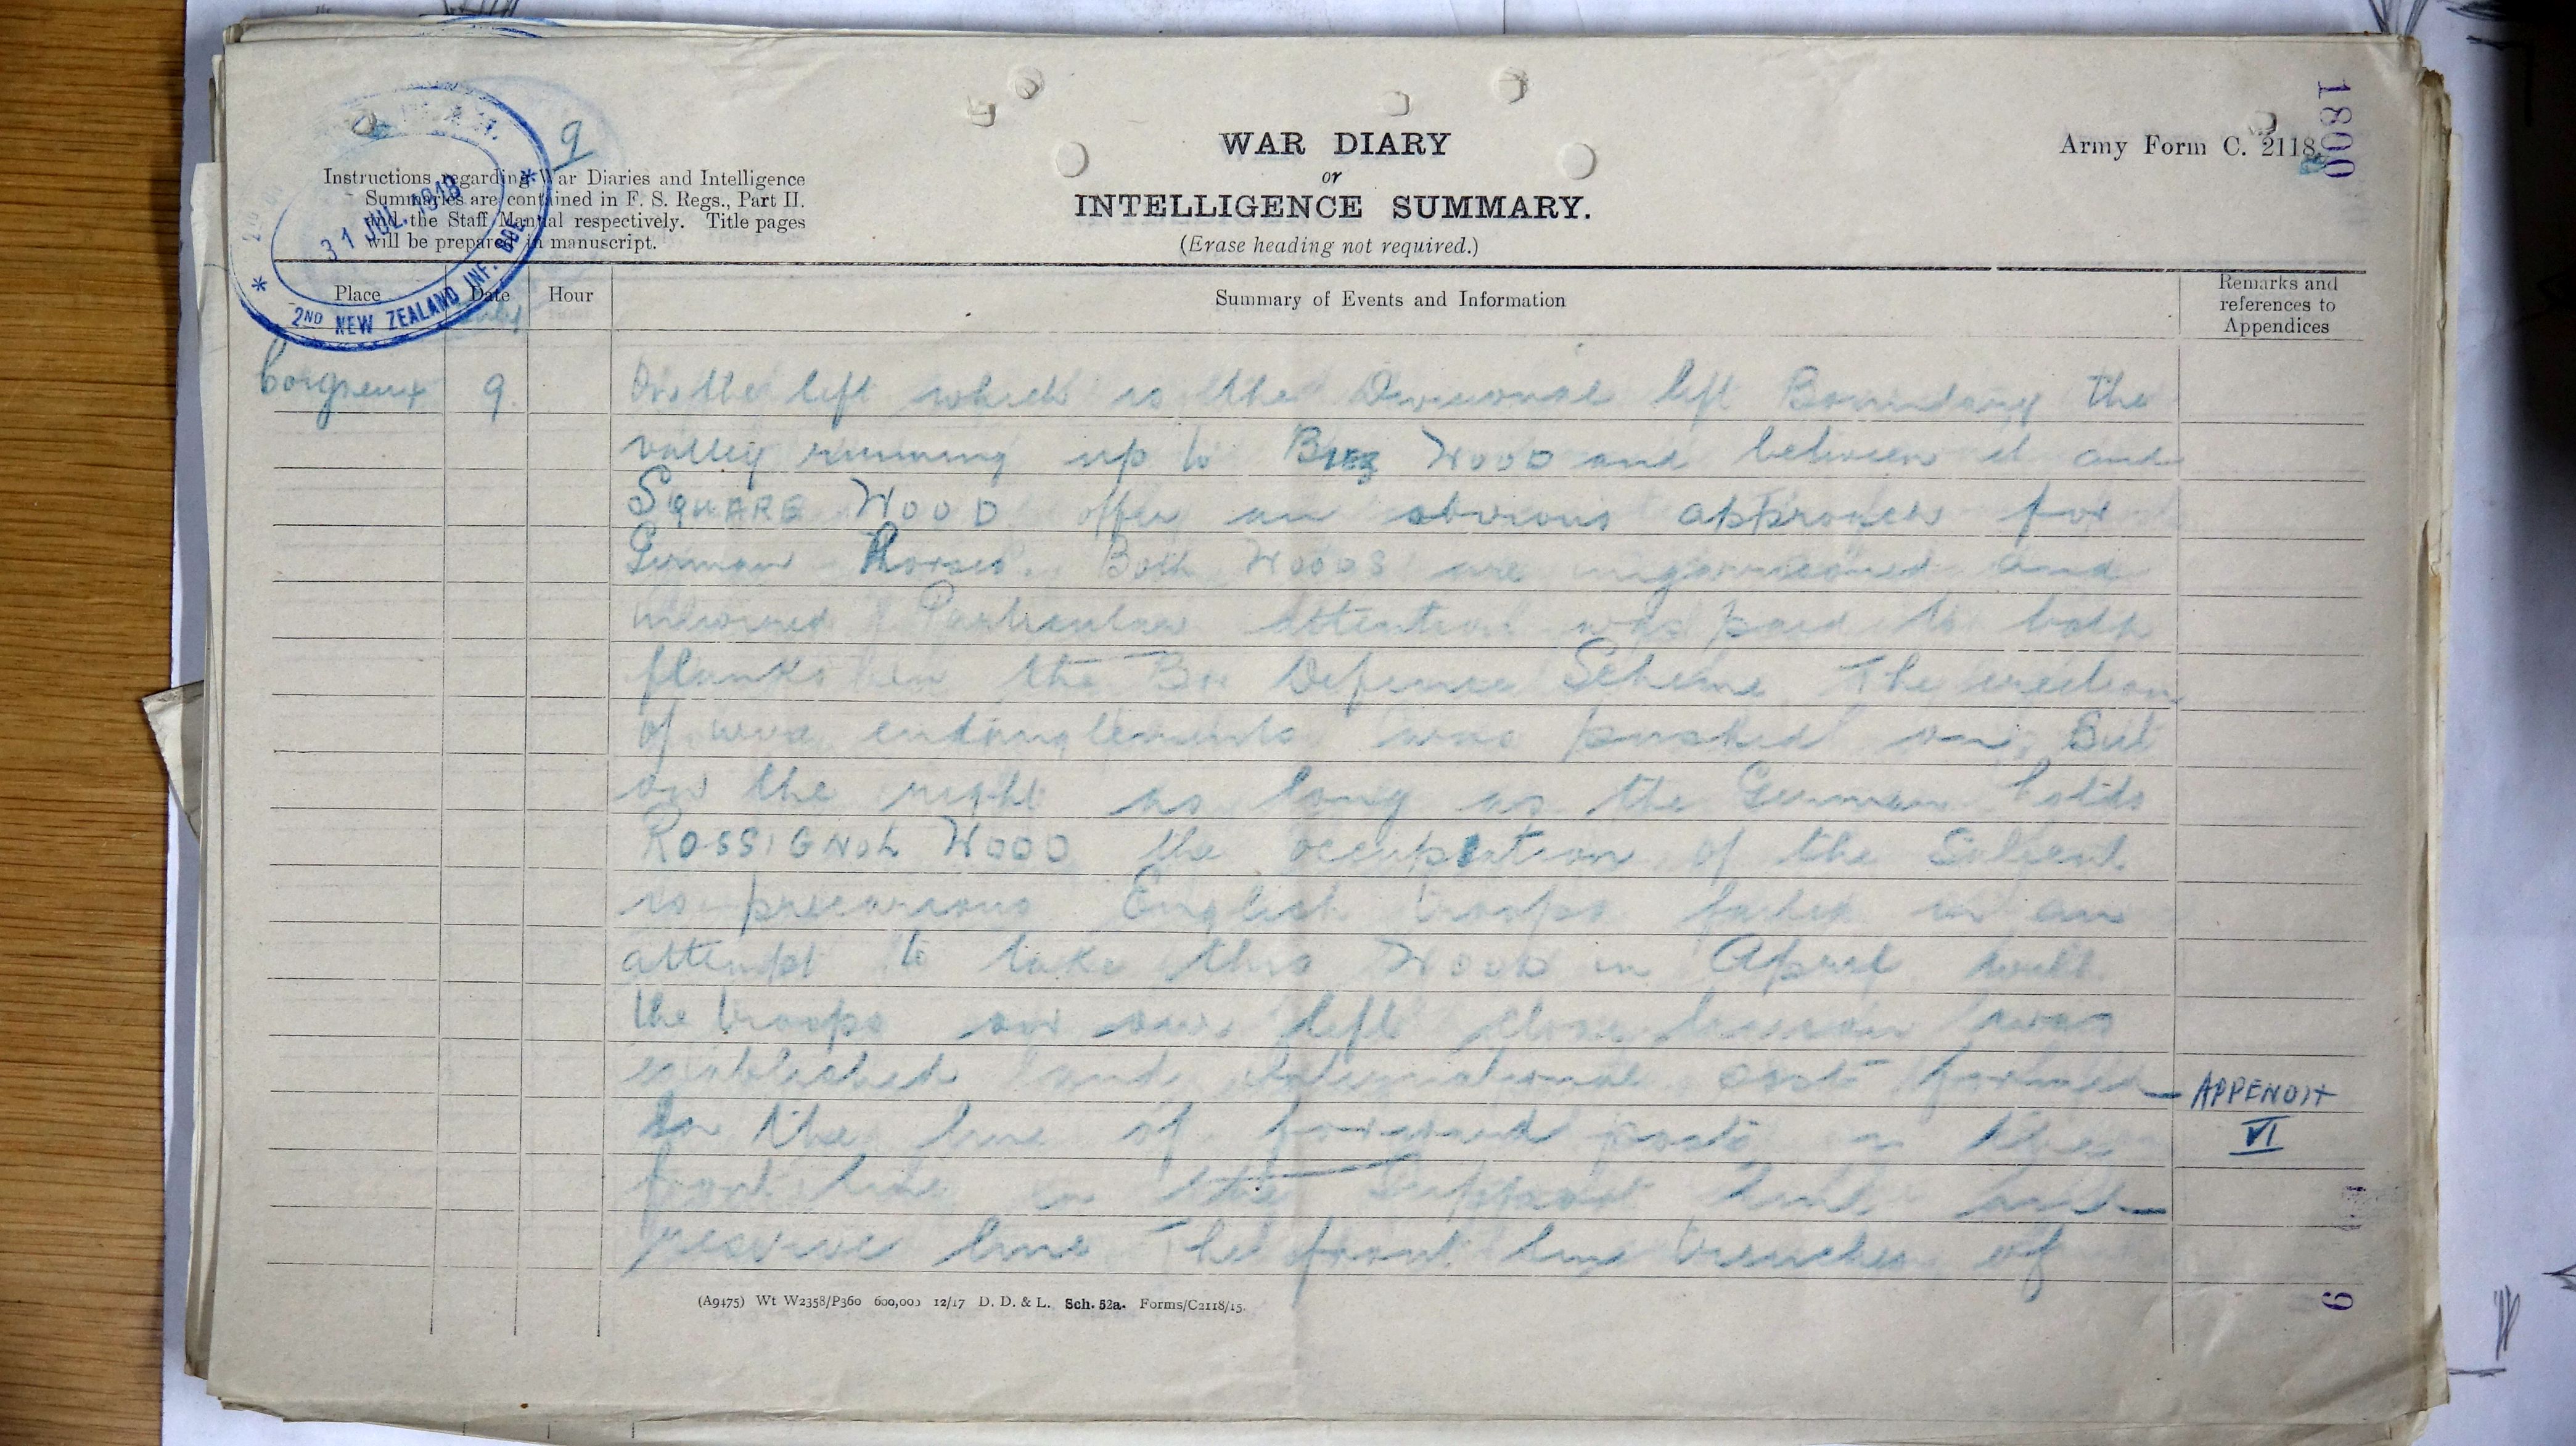 9
WAR DIARY
or
INTELLIGENCE SUMMARY.
(Erase heading not required.)
Army Form C. 2118.
1800
Instructions regarding War Diaries and Intelligence
Summaries are contained in F. S. Regs., Part II.
and the Staff Manual respectively. Title pages
will be prepared in manuscript.
31 JUL. 1918
2ND NEW ZEALAND INF. BDE
Place
Date
Hour
Summary of Events and Information
Remarks and
references to
Appendices
July
Coigneux 9. On the left which is the Divisional left Boundary the
valley running up to BIEZ WOOD and between it and
SQUARE WOOD offer an obvious approach for
German Forces. Both WOODS are ungarrisoned and
unwired Particular attention was paid to both
flanks in the Bde Defence Scheme The erection
of wire entanglements was pushed on, But
on the right as long as the German holds
ROSSIGNOL WOOD the occupation of the Salient
is precarious English troops failed in an
attempt to take this WOOD in April with
the troops on our left close liaison was
established and international post formed
In the line of forward posts in the
front line in the Support line and
reserve line The front line trenches of
APPENDIX
VI
9
(A9475) Wt W2358/P360 600,000 12/17 D. D. & L. Sch. 52a. Forms/C2118/15.